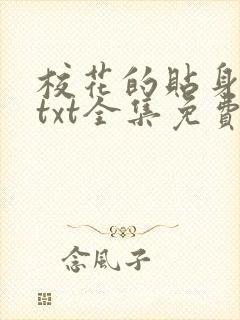 校花的貼身
txt全集免費
念風子